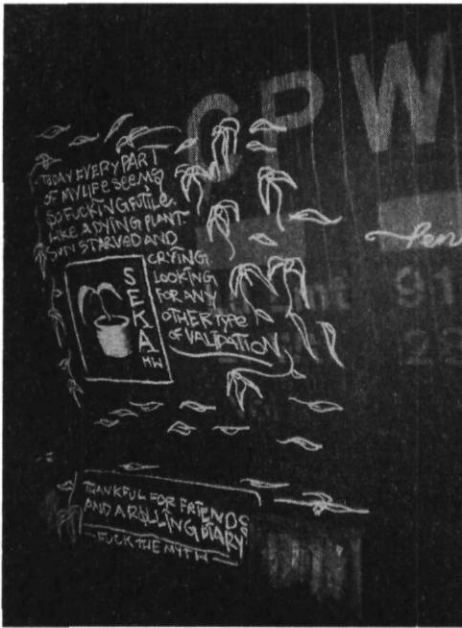 CPW
TODAY EVERY PART
OF MY LIFE SEEMS
SO FUCKING FUTILE.
LIKE A DYING PLANT
SUN STARVED AND
CRYING.
LOOKING
FOR ANY
OTHER TYPE
OF VALIDATION
SEKA
HW
91
22
THANKFUL FOR FRIENDS
AND A ROLLING DIARY
FUCK THE MYTH